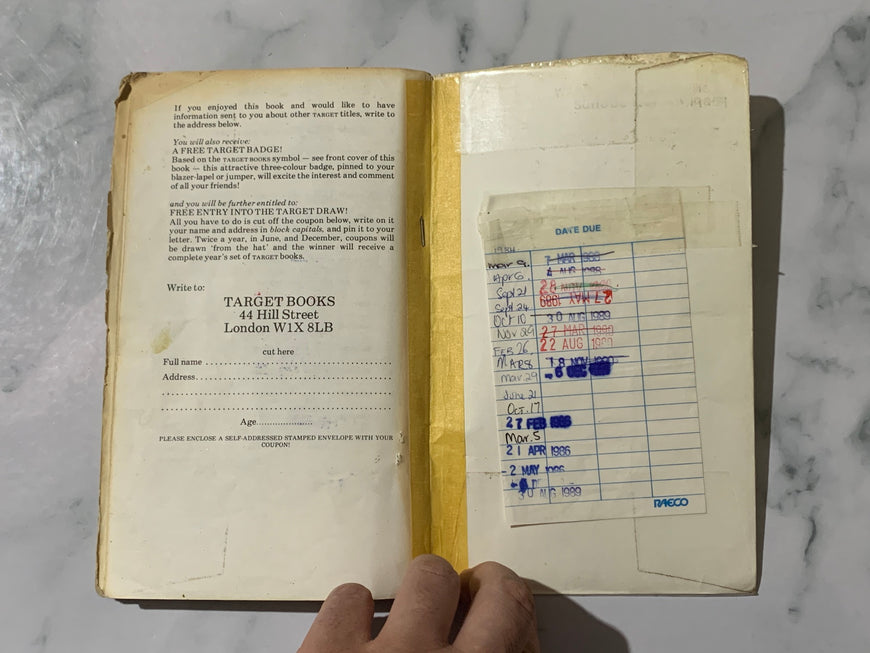 If you enjoyed this book and would like to have
information sent to you about other TARGET titles, write to
the address below.
You will also receive:
A FREE TARGET BADGE!
Based on the TARGET BOOKS symbol — see front cover of this
book — this attractive three-colour badge, pinned to your
blazer-lapel or jumper, will excite the interest and comment
of all your friends!
and you will be further entitled to:
FREE ENTRY INTO THE TARGET DRAW!
All you have to do is cut off the coupon below, write on it
your name and address in block capitals, and pin it to your
letter. Twice a year, in June, and December, coupons will
be drawn 'from the hat' and the winner will receive a
complete year's set of TARGET books.
Write to:
TARGET BOOKS
44 Hill Street
London W1X 8LB
cut here
Full name
Address
Age
PLEASE ENCLOSE A SELF-ADDRESSED STAMPED ENVELOPE WITH YOUR
COUPON!
DATE DUE
1984
Mar 9. 7 MAR
Apr 6 AUG
Sept 21 28
Sept 24 27 MAY
Oct 10 30 AUG 1989
Nov 29 27 MAR
FEB 26 22 AUG
MAR 8 18 NOV
Mar. 29 DEC
June 21
Oct. 17
27 FEB 1986
Mar. 5
21 APR 1986
2 MAY 1986
30 AUG 1989
RAECO